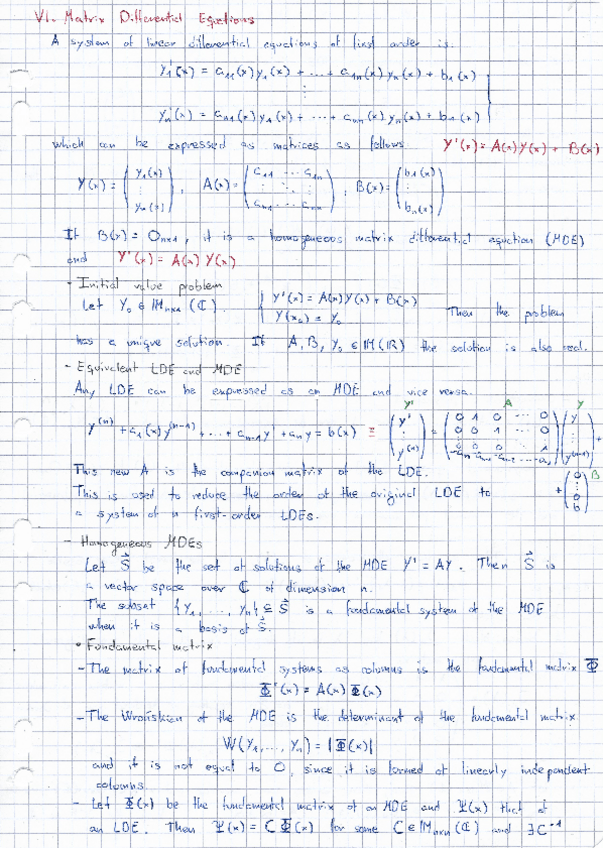 VI.- Matrix Differential Equations
A system of linear differential equations of first order is:
y₁'(x) = a₁₁(x)y₁(x) + ... + a₁ₙ(x)yₙ(x) + b₁(x)
⋮
yₙ'(x) = aₙ₁(x)y₁(x) + ... + aₙₙ(x)yₙ(x) + b₁(x)
which can be expressed as matrices as follows Y'(x) = A(x)Y(x) + B(x)
Y(x) = (y₁(x) ⋮ yₙ(x)), A(x) = (a₁₁ ... a₁ₙ ⋮ ⋱ ⋮ aₙ₁ ... aₙₙ), B(x) = (b₁(x) ⋮ bₙ(x))
If B(x) = 0ₙₓ₁, it is a homogeneous matrix differential equation (MDE)
and Y'(x) = A(x)Y(x)
- Initial value problem
Let Y₀ ∈ Mₙₓ₁(ℂ). { Y'(x) = A(x)Y(x) + B(x)
Y(x₀) = Y₀ Then the problem
has a unique solution. If A, B, Y₀ ∈ M(ℝ) the solution is also real.
- Equivalent LDE and MDE
Any LDE can be expressed as an MDE and vice versa.
y⁽ⁿ⁾ + a₁(x)y⁽ⁿ⁻¹⁾ + ... + aₙ₋₁y' + aₙy = b(x) ≡ Y' (y' ⋮ y⁽ⁿ⁾) = A (0 1 0 ... 0 0 0 ... 0 ⋮ 0 0 0 ... 1 -aₙ -aₙ₋₁ -aₙ₋₂ ... -a₁) Y (y ⋮ y⁽ⁿ⁻¹⁾) +
This new A is the companion matrix of the LDE.
This is used to reduce the order of the original LDE to + (0 0 ⋮ b) B
a system of n first-order LDEs.
- Homogeneous MDEs
Let S⃗ be the set of solutions of the MDE Y' = AY. Then S⃗ is
a vector space over ℂ of dimension n.
The subset {Y₁, ..., Yₙ} ⊆ S⃗ is a fundamental system of the MDE
when it is a basis of S⃗.
• Fundamental matrix
- The matrix of fundamental systems as columns is the fundamental matrix Φ
Φ'(x) = A(x)Φ(x)
- The Wrońskian of the MDE is the determinant of the fundamental matrix
W(Y₁, ..., Yₙ) = |Φ(x)|
and it is not equal to 0, since it is formed of linearly independent
columns
- Let Φ(x) be the fundamental matrix of an MDE and Ψ(x) that of
an LDE. Then Ψ(x) = CΦ(x) for some C ∈ Mₙₓₙ(ℂ) and ∃C⁻¹